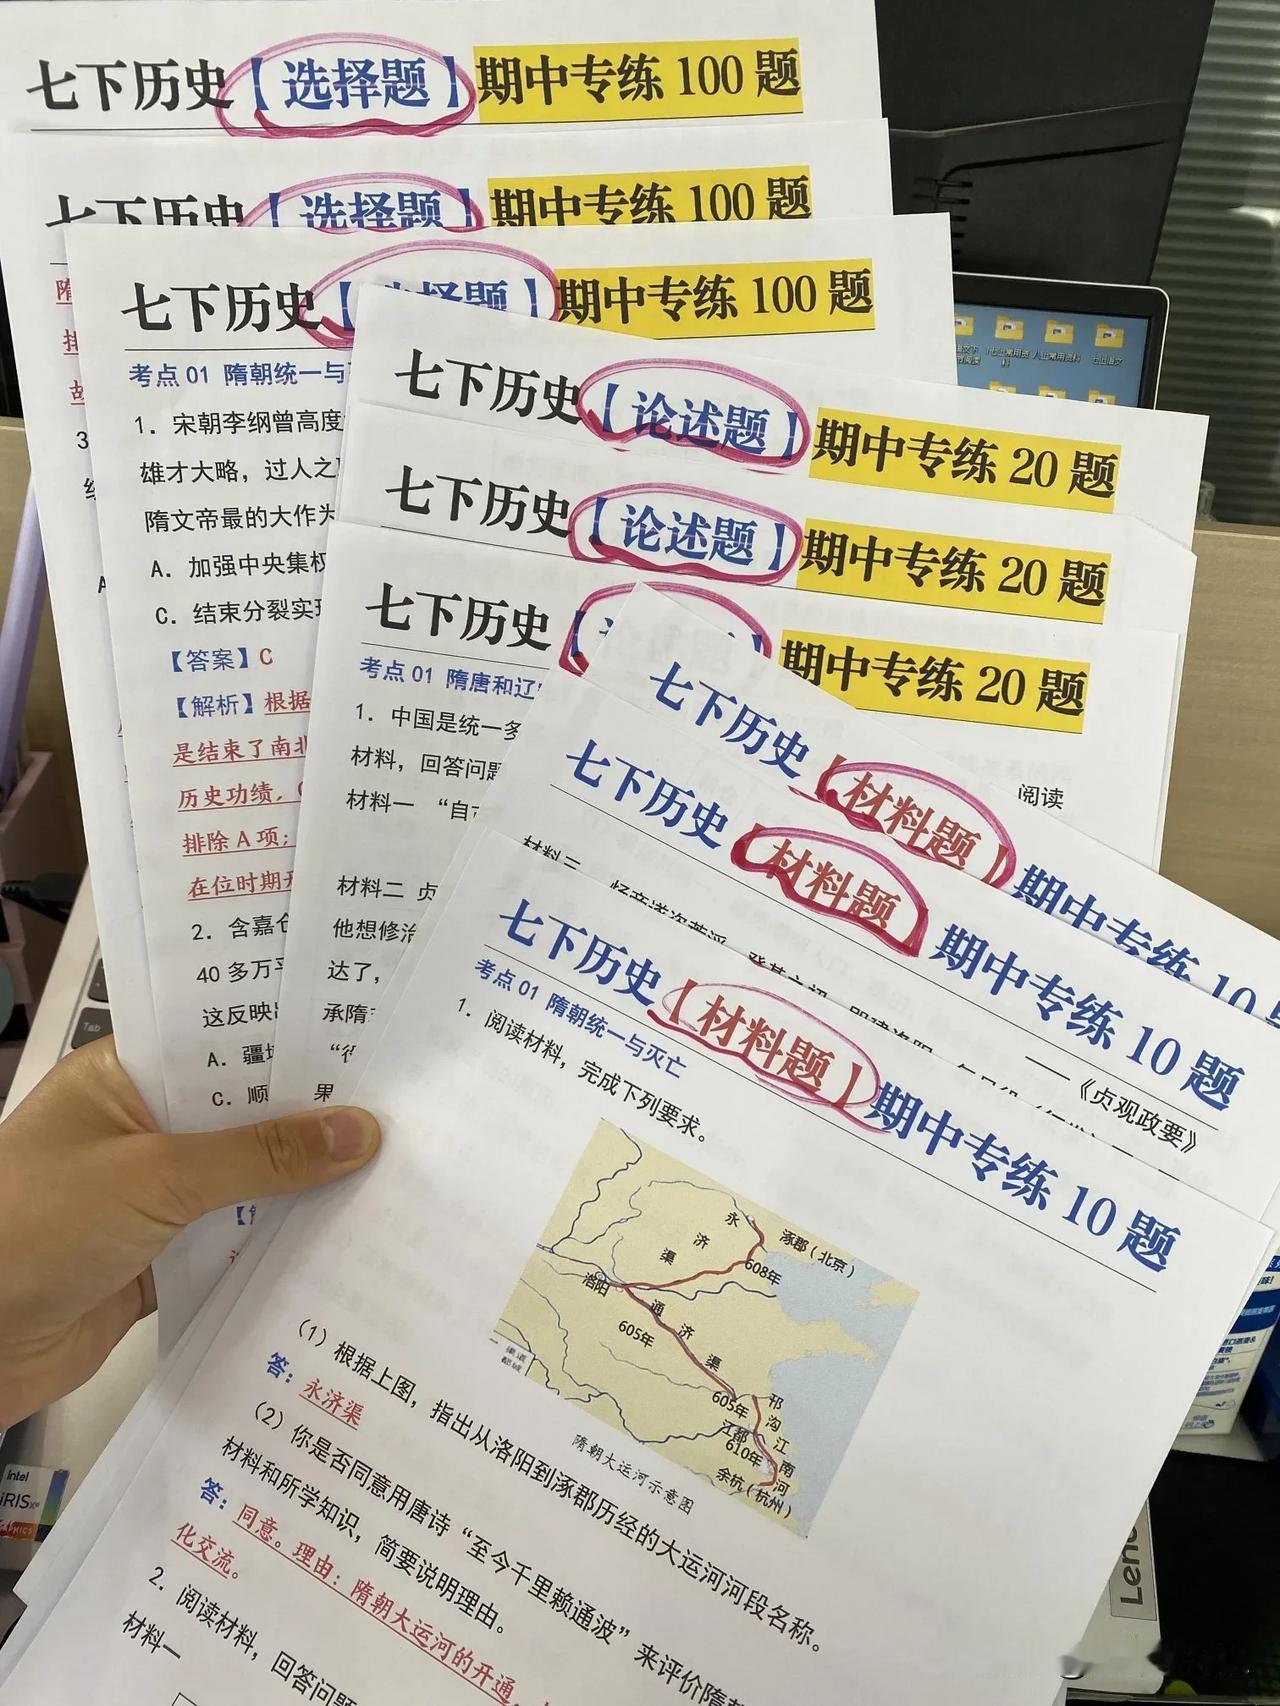 七下历史【选择题】期中专练 100 题
七下历史【选择题】期中专练 100 题
隋
排
故
3
A
七下历史【选择题】期中专练 100 题
考点 01 隋朝统一与
1. 宋朝李纲曾高度
雄才大略，过人之
隋文帝最的大作为
A. 加强中央集权
C. 结束分裂实现
【答案】C
【解析】根据
是结束了南北
历史功绩，
排除 A 项；
在位时期开
2. 含嘉仓
40 多万平
这反映出
A. 疆域
C. 顺
七下历史【论述题】期中专练 20 题
七下历史【论述题】期中专练 20 题
七下历史【 】期中专练 20 题
考点 01 隋唐和辽
1. 中国是统一多
材料，回答问题
材料一 “自古
材料二 贞
他想修洛
达了，
承隋
“行
果
阅读
七下历史【材料题】期中专练 10
七下历史【材料题】期中专练 10 题
——《贞观政要》
七下历史【材料题】期中专练 10 题
考点 01 隋朝统一与灭亡
1. 阅读材料，完成下列要求。
永
济
渠
涿郡（北京）
608年
洛阳
通
济
渠
605年
605年
邗
沟
江都
610年
江
南
河
余杭（杭州）
渠道
都城
隋朝大运河示意图
（1）根据上图，指出从洛阳到涿郡历经的大运河河段名称。
答：永济渠
（2）你是否同意用唐诗“至今千里赖通波”来评价隋
材料和所学知识，简要说明理由。
答：同意。理由：隋朝大运河的开通，
化交流。
2. 阅读材料，回答问题
材料一
七上常用资料
八上常用资料
七上语文
Tab
intel
iRIS Xe
GRAPHICS
Leno